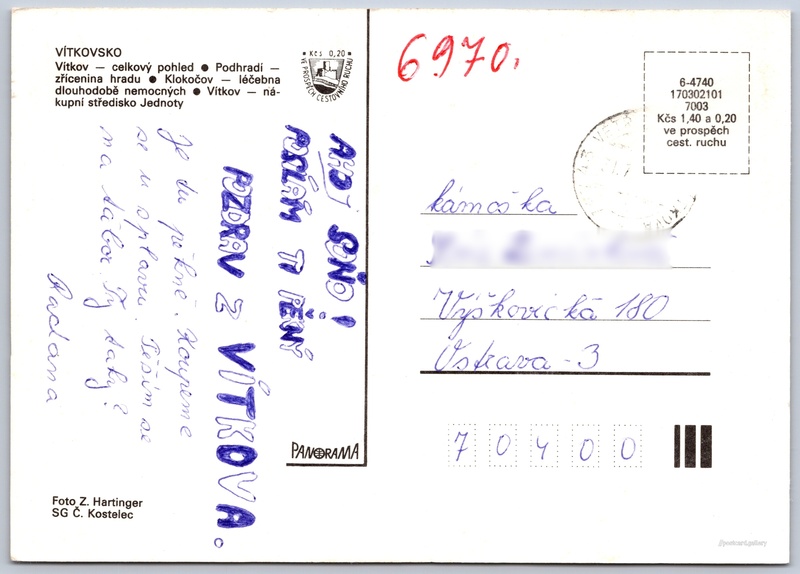 VÍTKOVSKO
Vítkov — celkový pohled ● Podhradí —
zřícenina hradu ● Klokočov — léčebna
dlouhodobě nemocných ● Vítkov — ná-
kupní středisko Jednoty
Kčs 0,20
VE PROSPĚCH CESTOVNÍHO RUCHU
6970.
6-4740
170302101
7003
Kčs 1,40 a 0,20
ve prospěch
cest. ruchu
AHOJ SOŇO!
POSÍLÁM TI PĚKNÝ
POZDRAV Z VÍTKOVA.
Je tu pěkně. Koupeme
se u splavu. Těším se
na tábor. Ty taky?
Radana
kámoška
Výškovická 180
Ostrava-3
70400
PANORAMA
Foto Z. Hartinger
SG Č. Kostelec
@postcart.gallery